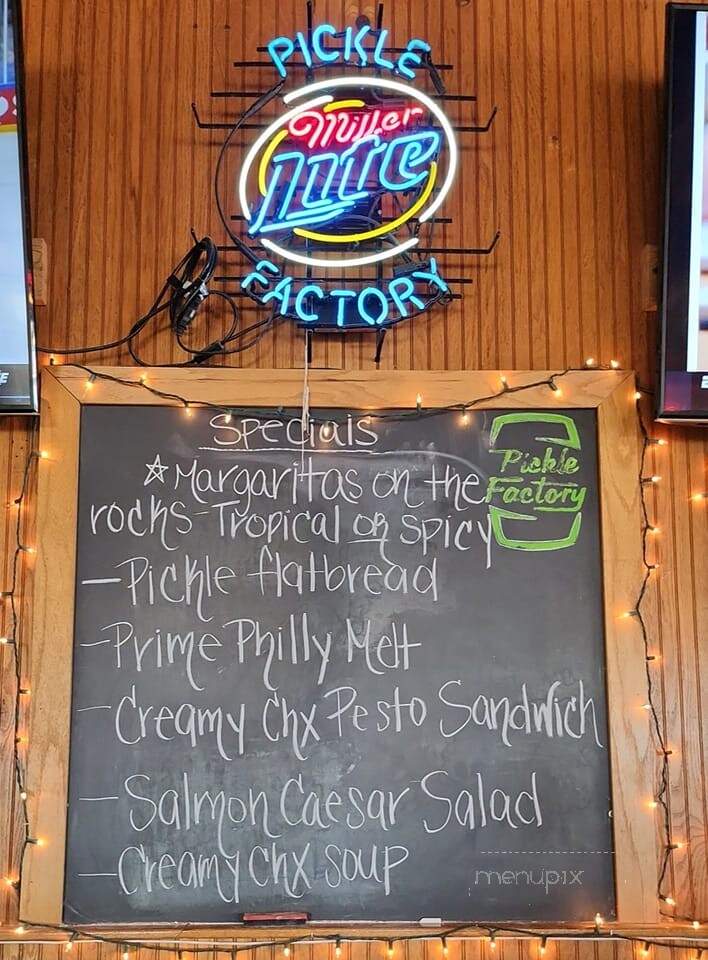 PICKLE
Miller
Lite
FACTORY
Specials
☆Margaritas on the
rocks-Tropical or Spicy
Pickle
Factory
-Pickle flatbread
-Prime Philly Melt
-Creamy Chx Pesto Sandwich
-Salmon Caesar Salad
-Creamy Chx soup
menupix